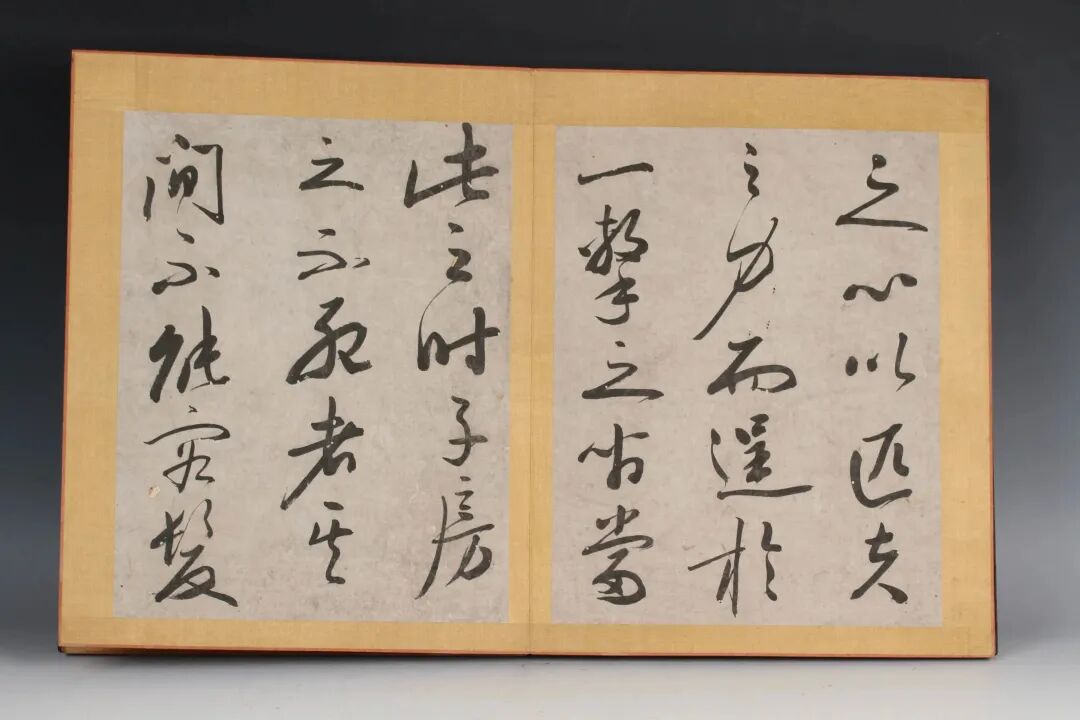 之心以匹夫
之力而逞於
一擊之間當
此之時子房
之不死者其
間不能容髮